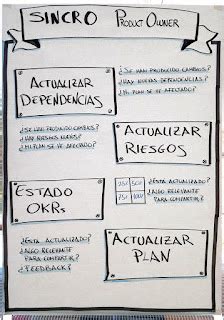 SINCRO PRODUCT OWNER
ACTUALIZAR
DEPENDENCIAS
¿SE HAN PRODUCIDO CAMBIOS?
¿HAY NUEVAS DEPENDENCIAS?
¿MI PLAN SE VE AFECTADO?
¿SE HAN PRODUCIDO CAMBIOS?
¿HAY RIESGOS NUEVOS?
¿MI PLAN SE VE AFECTADO?
ACTUALIZAR
RIESGOS
ESTADO
OKRs
25% 50%
75% 100%
¿ESTÁ ACTUALIZADO?
¿ALGO RELEVANTE
PARA COMPARTIR?
¿ESTÁ ACTUALIZADO?
¿ALGO RELEVANTE
PARA COMPARTIR?
¿FEEDBACK?
ACTUALIZAR
PLAN